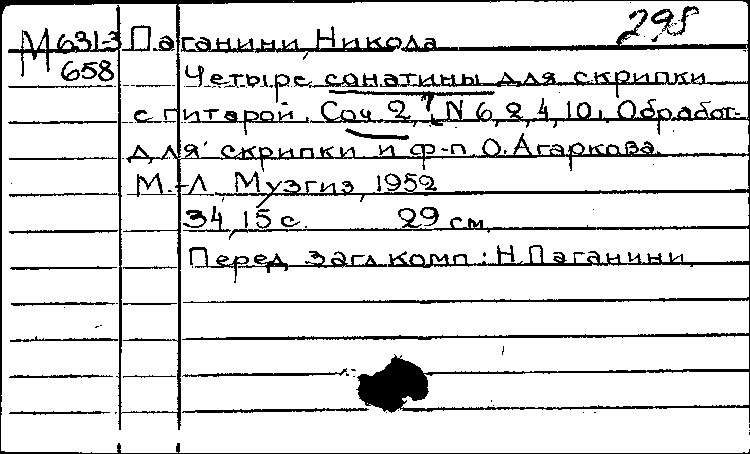 298
М 631-3 Паганини, Никола
658 Четыре сонатины для скрипки
с гитарой. Соч 2, N 6, 2, 4, 10. Обработ-
для скрипки и ф-п О. Агаркова.
М.-Л., Музгиз, 1952
34, 15 с. 29 см.
Перед загл. комп.: Н. Паганини